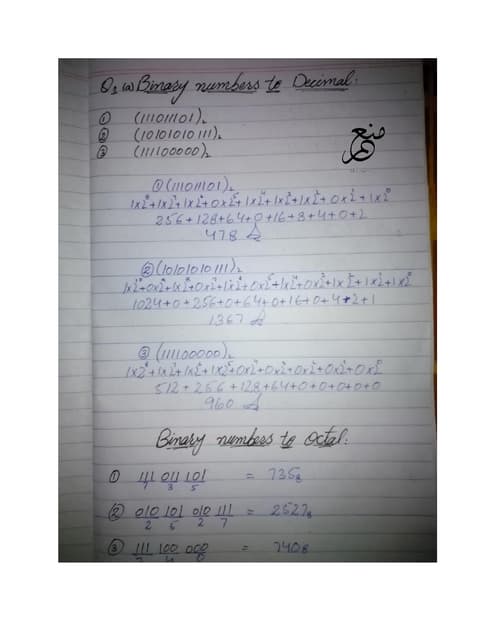 Q1 (a) Binary numbers to Decimal:
① (111011101)₂
② (10101010111)₂
③ (111100000)₂
منعم
① (111011101)₂
1x2⁸+1x2⁷+1x2⁶+0x2⁵+1x2⁴+1x2³+1x2²+0x2¹+1x2⁰
256+128+64+0+16+8+4+0+2
478
② (10101010111)₂
1x2¹⁰+0x2⁹+1x2⁸+0x2⁷+1x2⁶+0x2⁵+1x2⁴+0x2³+1x2²+1x2¹+1x2⁰
1024+0+256+0+64+0+16+0+4+2+1
1367
③ (111100000)₂
1x2⁸+1x2⁷+1x2⁶+1x2⁵+0x2⁴+0x2³+0x2²+0x2¹+0x2⁰
512+256+128+64+0+0+0+0+0
960
Binary numbers to Octal:
① 111 011 101 = 735₈
7 3 5
② 010 101 010 111 = 2527₈
2 5 2 7
③ 111 100 000 = 740₈